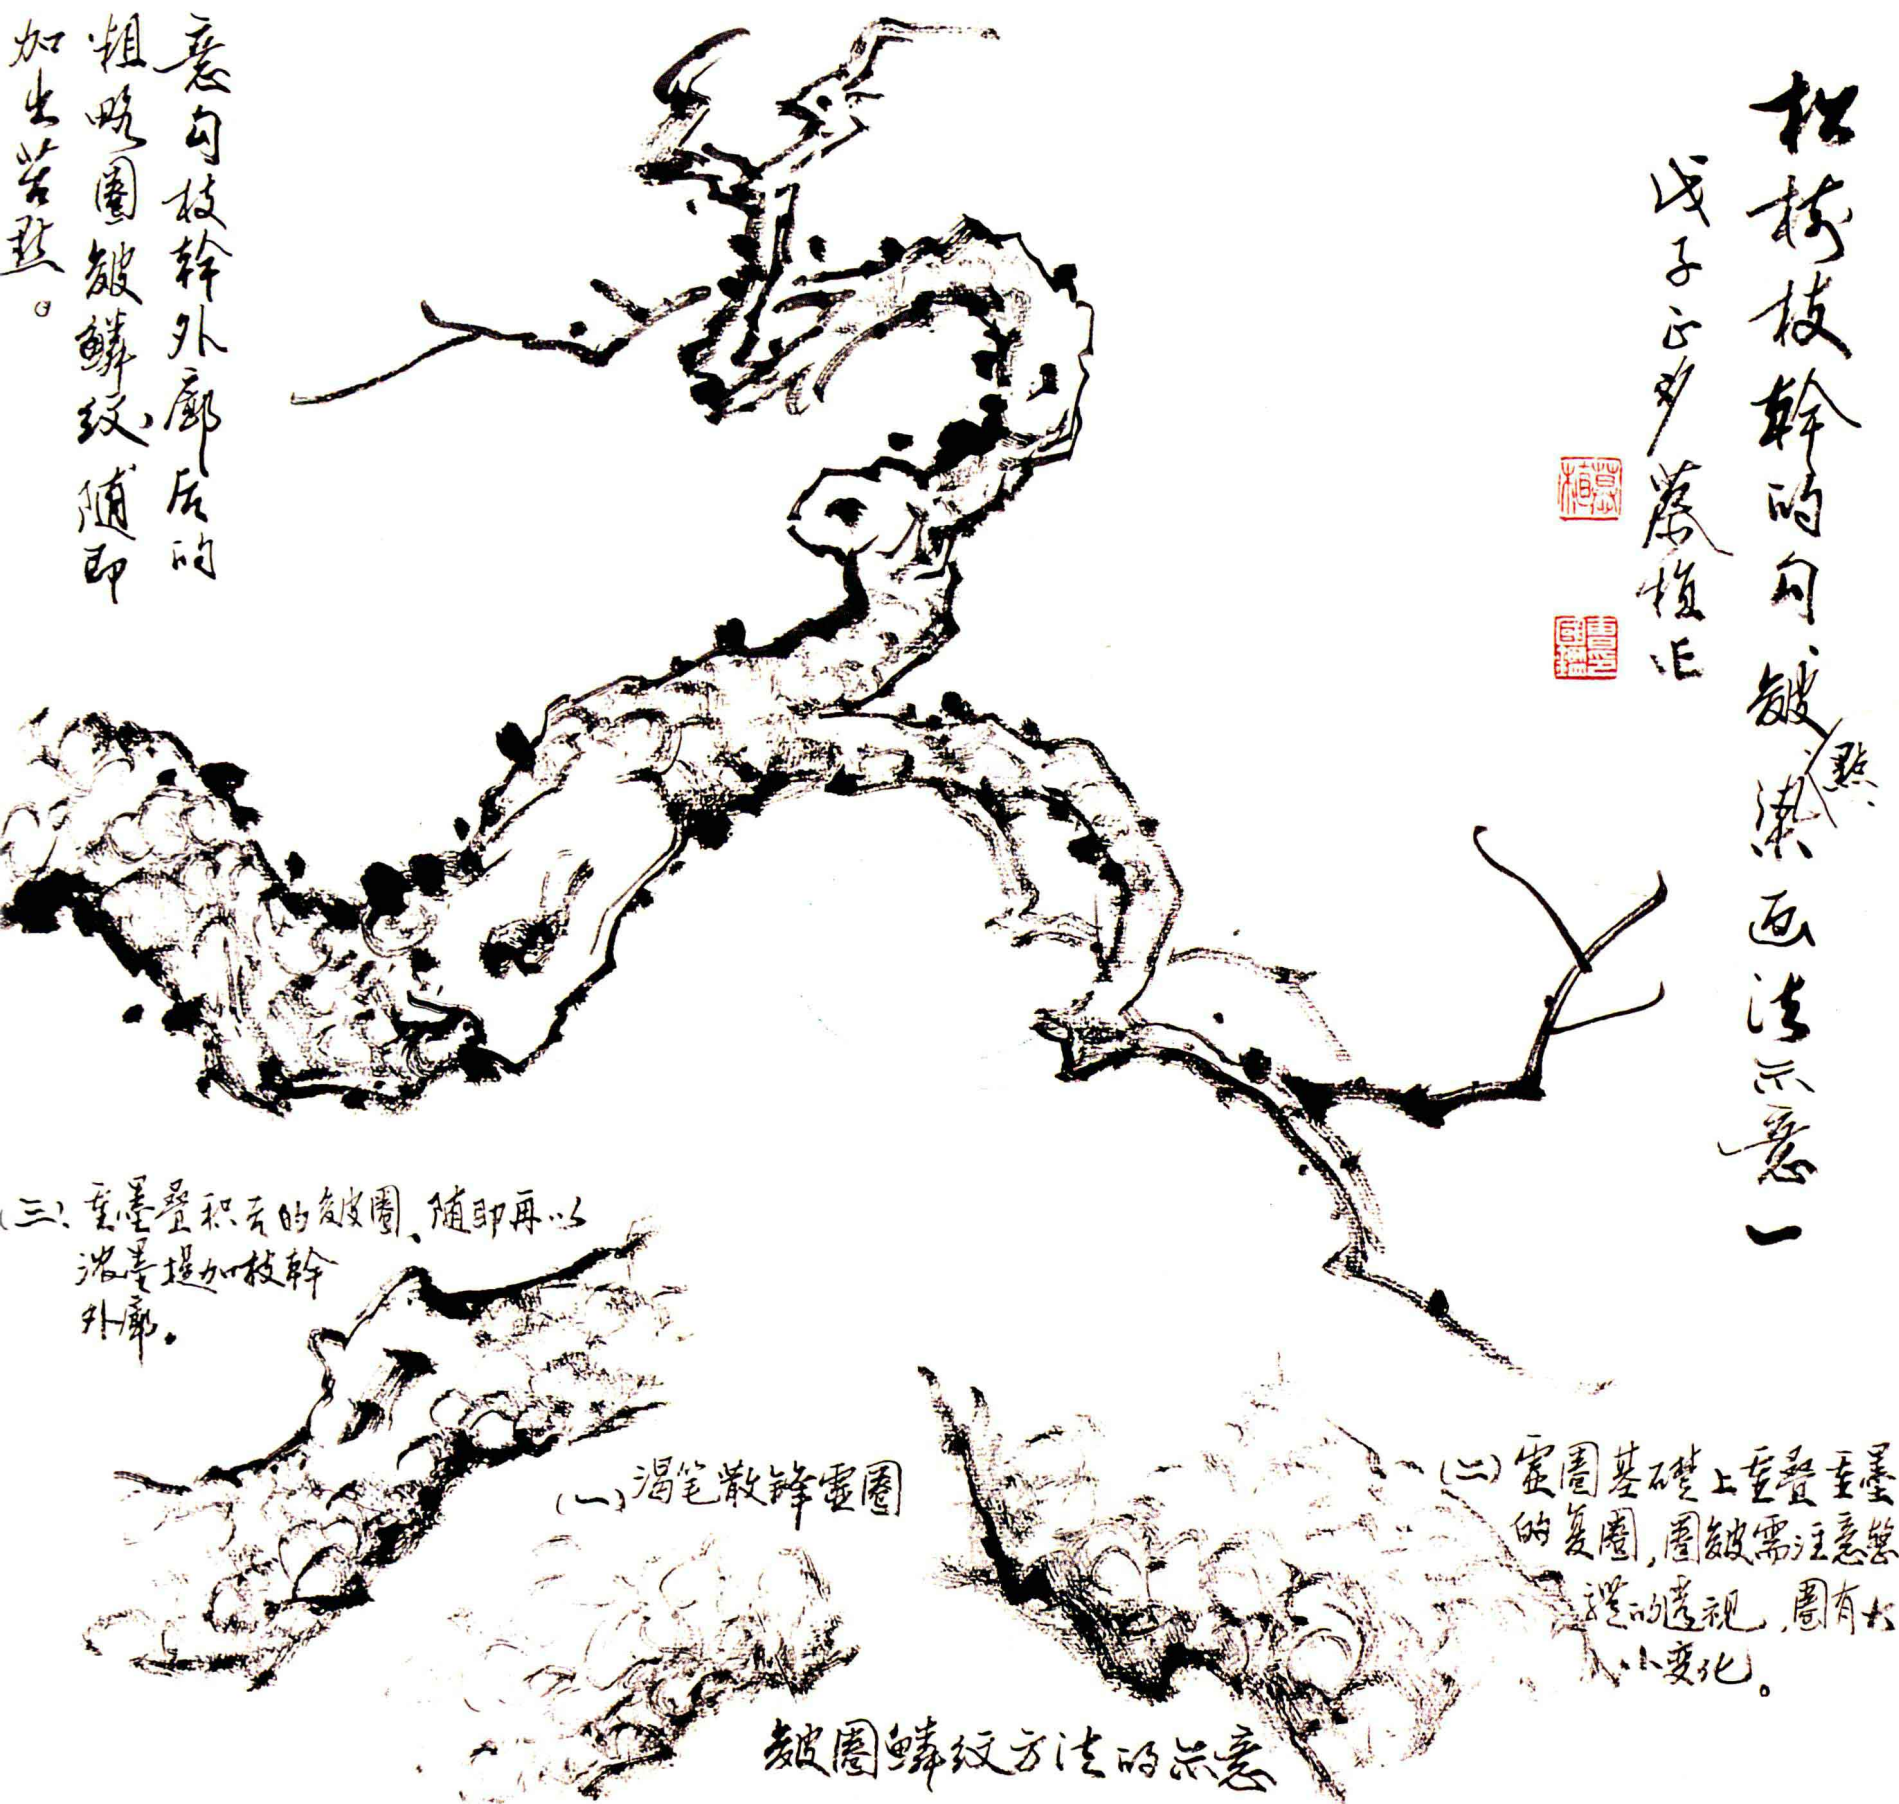 松树枝幹的勾、皴、點、染画法示意一
戊子正月蔡植作
意勾枝幹外廓后的
粗略圈皴鳞纹随即
加出苔點。
(三)、重墨叠积后的皴圈、随即再以
浓墨提加枝幹
外廓。
(一)、渴笔散锋虚圈
(二)虚圈基础上重叠重墨
的复圈，圈皴需注意整
体的透视，圈有大
小变化。
皴圈鳞纹方法的示意